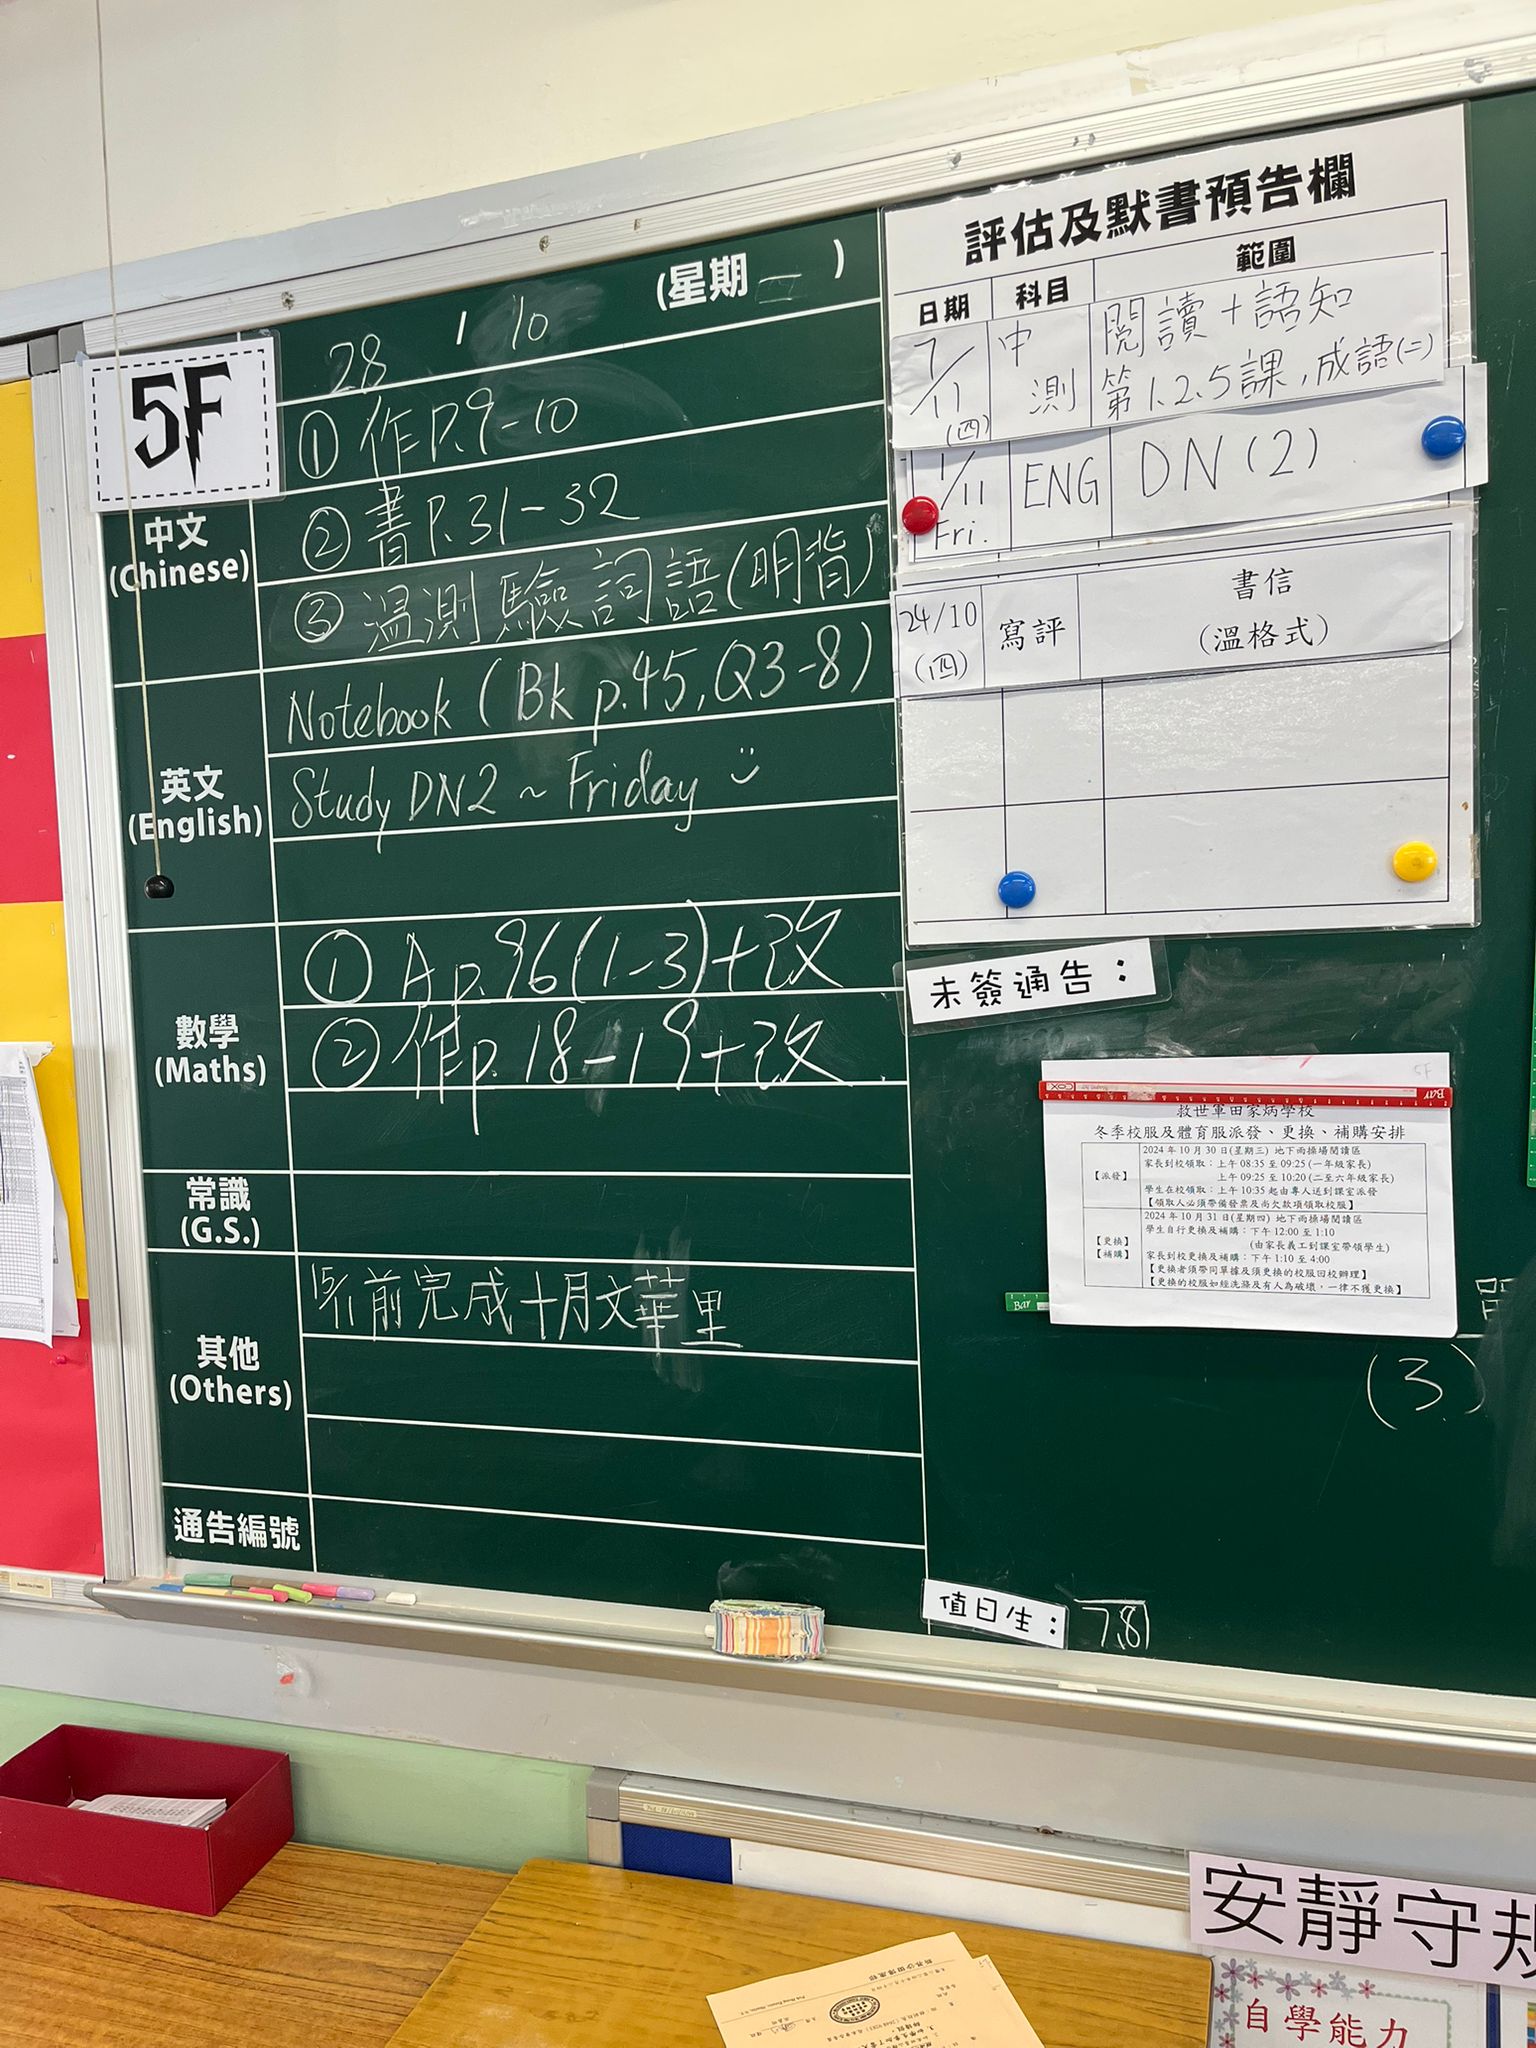 28 / 10 (星期一)
5F
中文
(Chinese)
① 作P.9-10
② 書P.31-32
③ 溫測驗詞語(明背)
英文
(English)
Notebook (Bk p.45, Q3-8)
Study DN2 ~ Friday
數學
(Maths)
① A p.96(1-3)+改
② 作p.18-19+改
常識
(G.S.)
其他
(Others)
前完成十月文華里
通告編號
評估及默書預告欄
日期 科目 範圍
7/11 (四) 中測 閱讀+語知
第1.2.5課,成語(二)
1/11 Fri. ENG DN (2)
24/10 (四) 寫評 書信
(溫格式)
未簽通告:
5F
救世軍田家炳學校
冬季校服及體育服派發、更換、補購安排
【派發】
2024 年 10 月 30 日(星期三) 地下雨操場閱讀區
家長到校領取:上午 08:35 至 09:25 (一年級家長)
上午 09:25 至 10:20 (二至六年級家長)
學生在校領取:上午 10:35 起由專人送到課室派發
【領取人必須帶備發票及尚欠款項領取校服】
【更換】
【補購】
2024 年 10 月 31 日(星期四) 地下雨操場閱讀區
學生自行更換及補購:下午 12:00 至 1:10
(由家長義工到課室帶領學生)
家長到校更換及補購:下午 1:10 至 4:00
【更換者須帶同單據及須更換的校服回校辦理】
【更換的校服如經洗滌及有人為破壞,一律不獲更換】
Bar
(3)
值日生: 7,8
安靜守規
自學能力